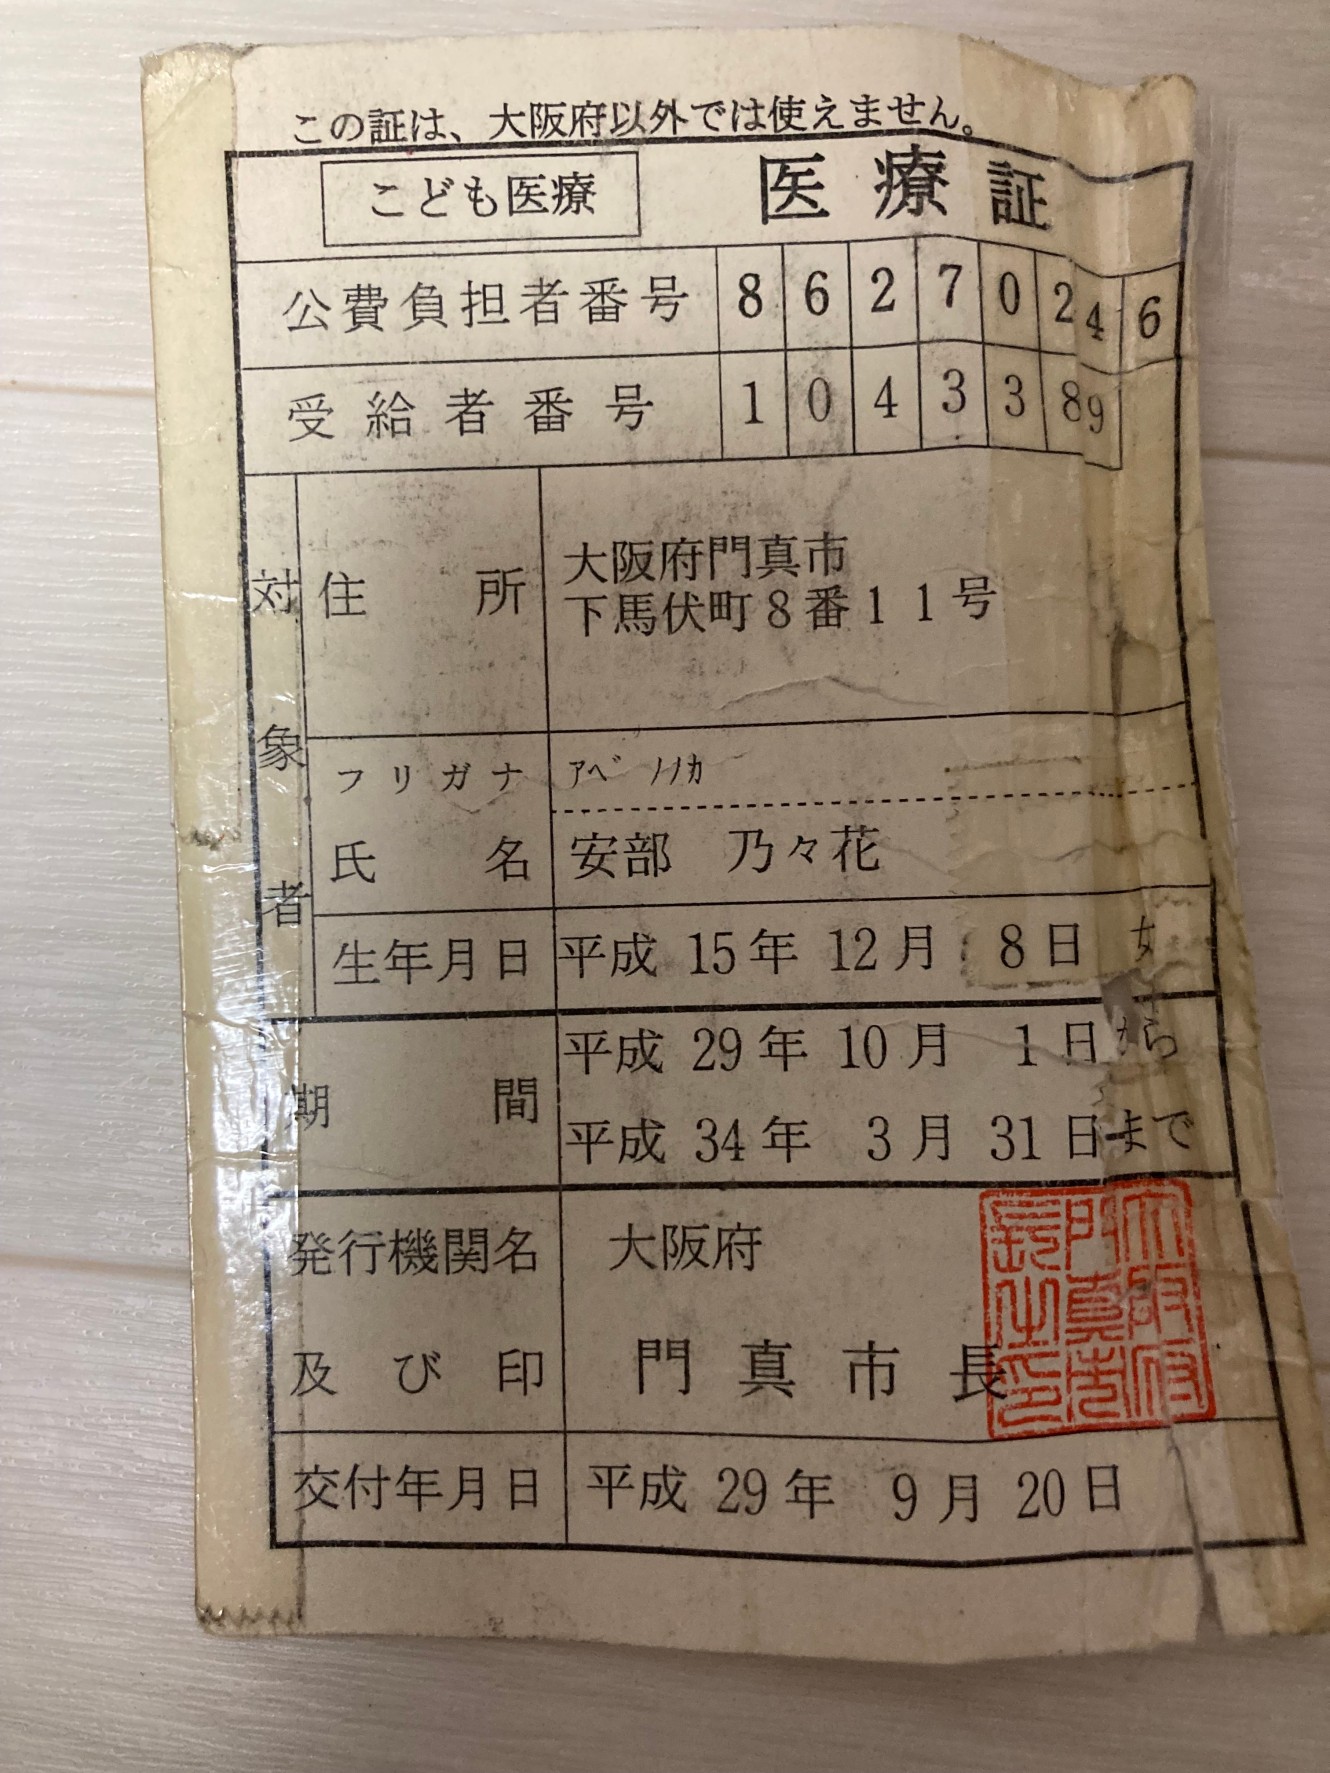 この証は、大阪府以外では使えません。
こども医療 医療証
公費負担者番号 8 6 2 7 0 2 4 6
受給者番号 1 0 4 3 3 8 9
対象者
住所 大阪府門真市
下馬伏町8番11号
フリガナ ｱﾍﾞ ﾉﾉｶ
氏名 安部 乃々花
生年月日 平成 15年 12月 8日 女
期間 平成 29年 10月 1日から
平成 34年 3月 31日まで
発行機関名 大阪府
及び印 門真市長
大阪府
門真市
長之印
交付年月日 平成 29年 9月 20日